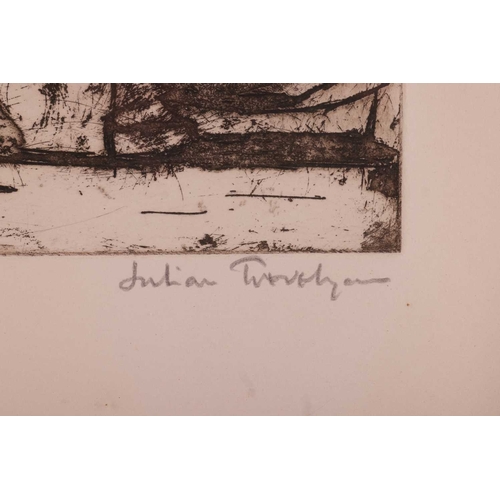 Julian Trevelyan